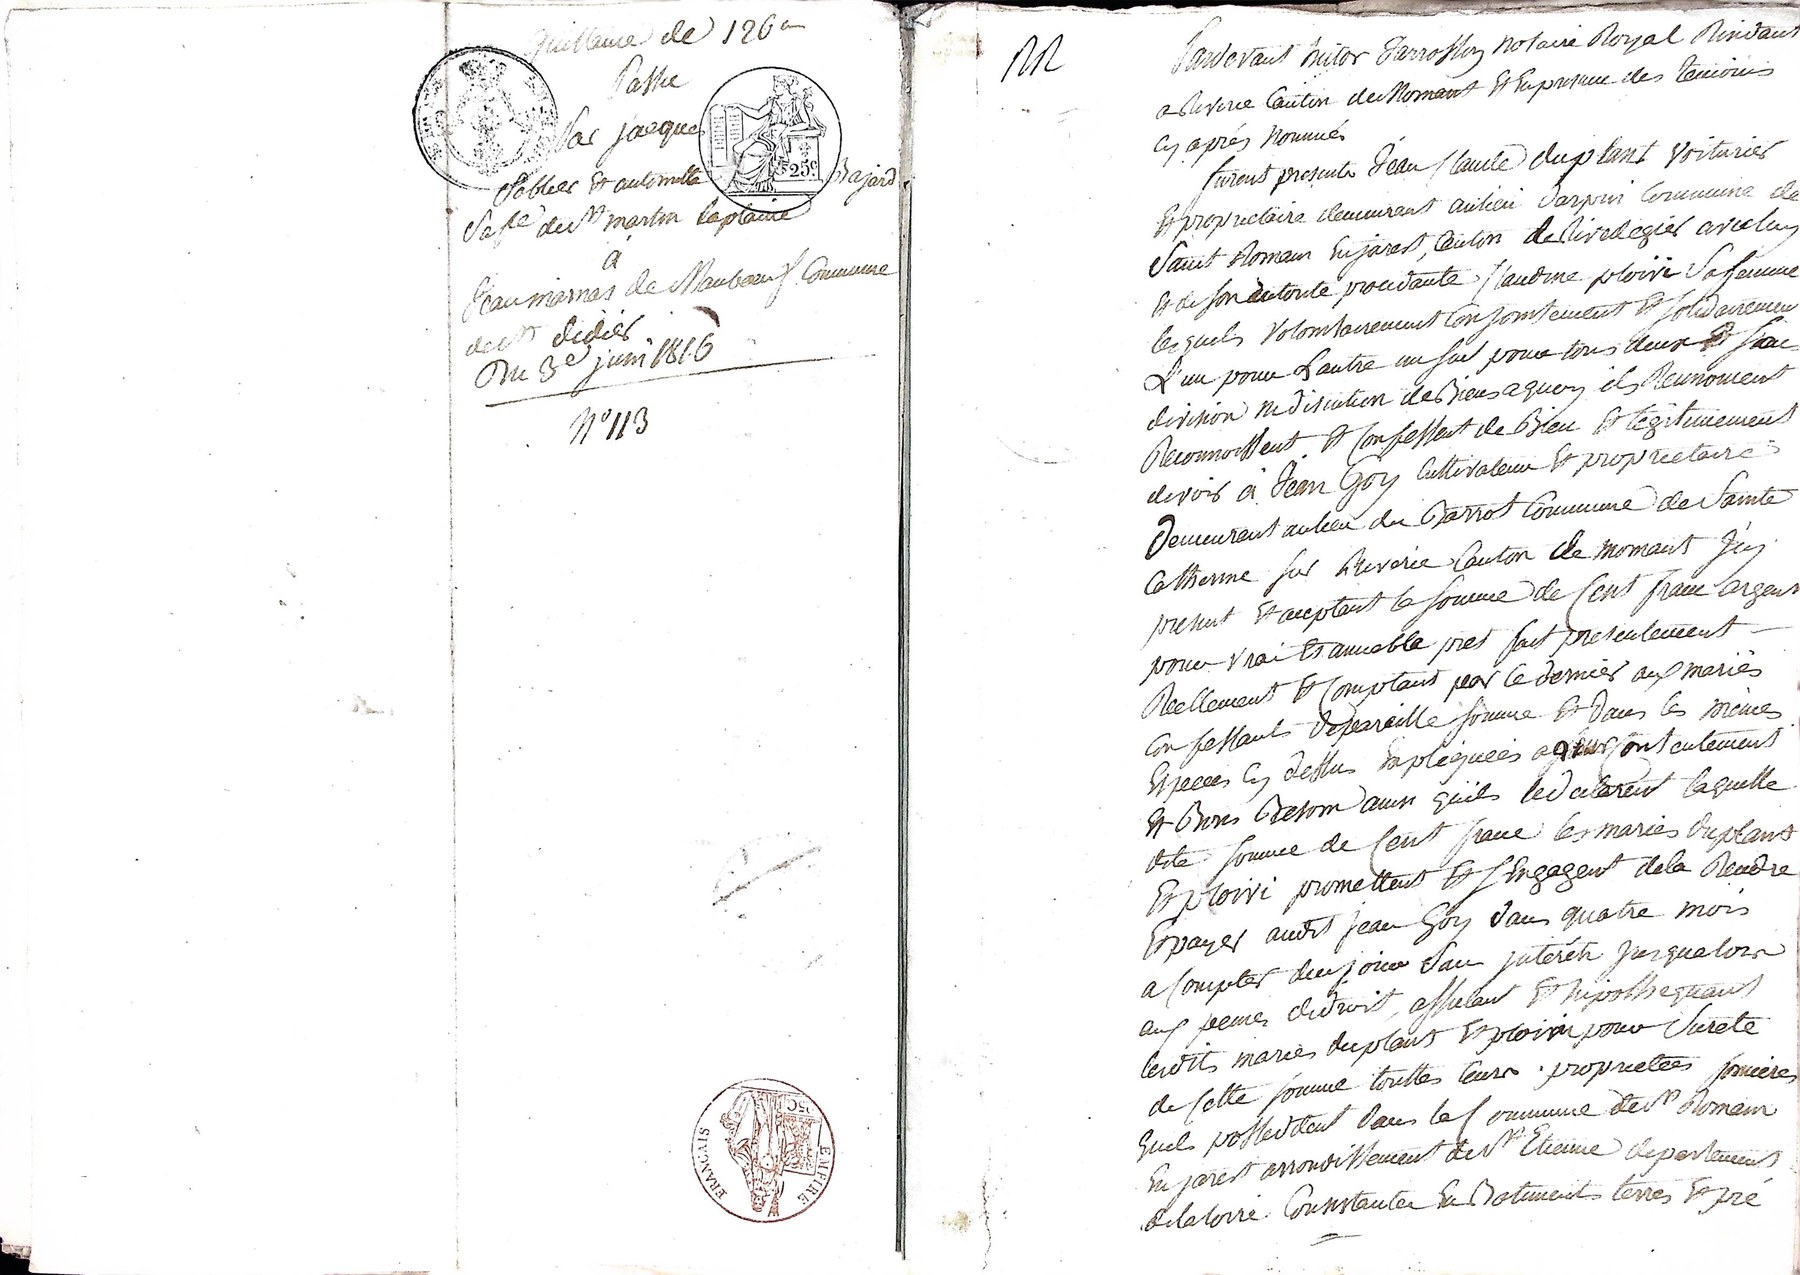 quittance de 126 
Passé
Par jacques
Poblier Et antoinette Bajard
Sa fe de St martin laplaine
à
Jean marnas de Maubœuf Commune
de St didier
Du 3e juin 1816
N° 113
25c
EMPIRE FRANCAIS
Pardevant hector Notaire Royal Résidant
a Riverie Canton de Mornant Et En presence des temoins
Cy après Nommés
furent presents Jean Claude duplant Voiturier
Et proprietaire demeurant au lieu Commune de
Saint Romain En jarest, Canton de Rivedegier avec luy
Et de Son autorité procedante Claudine ploivi Sa femme
lesquels Volontairement Conjointement Et Solidairement
L'un pour Lautre un Seul pour tous deux Et Sans
division ni discution de Biens aquoy ils Renoncent
Reconnoissent Et Confessent de Bien Et legitimement
devoir à Jean Goy Cultivateur Et proprietaire
Demeurant au lieu du Barrot Commune de Sainte
Catherine Sur Riverie Canton de mornant Icy
present Et acceptant la Somme de Cent franc argent
pour vrai Et amiable pret fait presentement
Reellement Et Comptant par Ce dernier aux mariés
Confessants de pareille Somme Et dans les mêmes
Especes Cy dessus Expliquées a leur Contentement
Et Bons Besoin ainsi qu'ils le déclarent laquelle
dite Somme de Cent franc les mariés duplant
Et ploivi promettent Et S'Engagent de la Rendre
Et payer audit jean Goy dans quatre mois
a Compter de ce jour San jnterêts Jusqualors
aux peines de droit, affectant Et hipothequant
lesdits mariés duplant Et ploivi pour Sureté
de Cette Somme touttes leurs proprietées foncieres
quils possedent dans la Commune de St Romain
En jarest arrondissement de St Etienne departement
de la loire Consistantes En Batiments terres Et pré